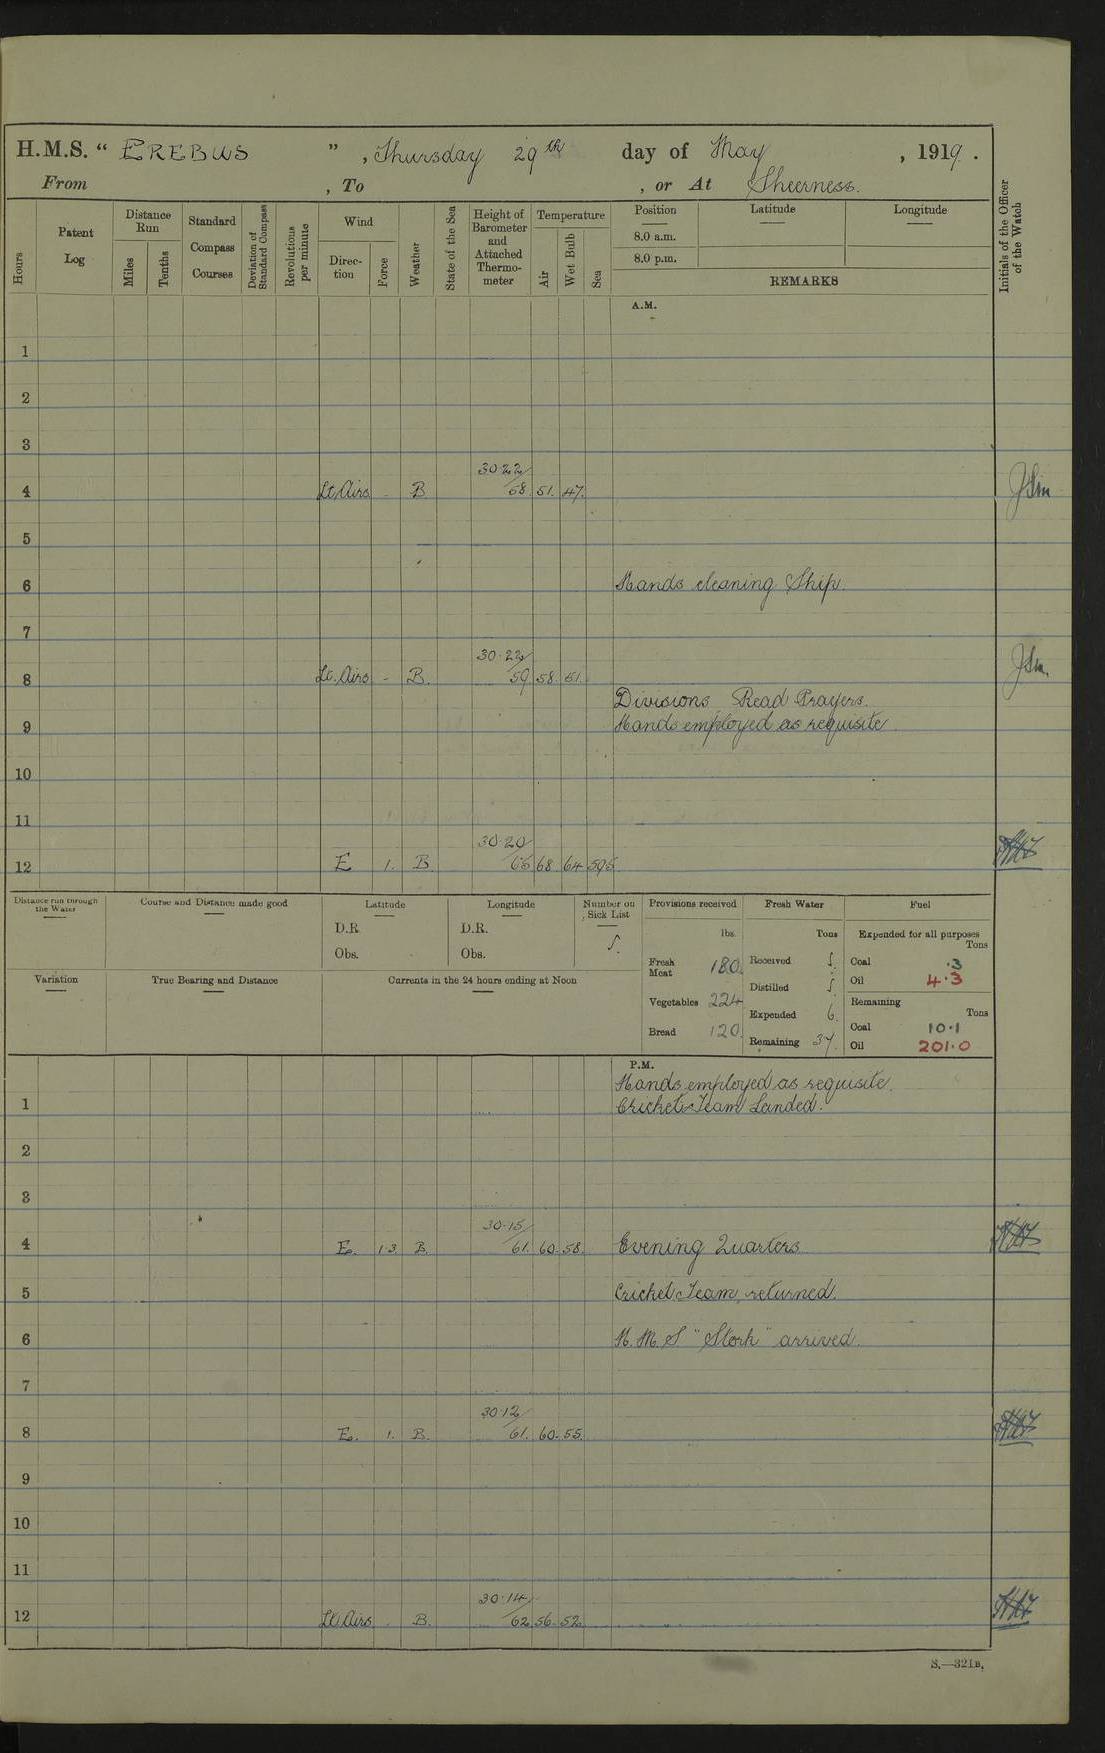 H.M.S. “ EREBUS ” , Thursday 29th day of May , 1919 .
From , To , or At Sheerness.
Hours
Patent Log
Distance Run
Miles
Tenths
Standard Compass Courses
Deviation of Standard Compass
Revolutions per minute
Wind
Direction
Force
Weather
State of the Sea
Height of Barometer and Attached Thermometer
Temperature
Air
Wet Bulb
Sea
Position
8.0 a.m.
8.0 p.m.
Latitude
Longitude
REMARKS
Initials of the Officer of the Watch
A.M.
1
2
3
30·22
4 Lt. Airs - B. 58. 51. 47.
5
6 Hands cleaning Ship.
7
30·22
8 Lt. Airs - B. 59 58. 51.
Divisions. Read Prayers.
9 Hands employed as requisite.
10
11
30·20
12 E 1. B. 68 64 59.5
Distance run through the Water
Course and Distance made good
Latitude
D.R.
Obs.
Longitude
D.R.
Obs.
Number on Sick List
5.
Provisions received
lbs.
Fresh Meat 180.
Vegetables 224
Bread 120.
Fresh Water
Tons
Received
Distilled
Expended 6.
Remaining 37.
Fuel
Expended for all purposes
Tons
Coal ·3
Oil 4·3
Remaining
Tons
Coal 10·1
Oil 201·0
Variation
True Bearing and Distance
Currents in the 24 hours ending at Noon
P.M.
Hands employed as requisite.
1 Cricket Team Landed.
2
3
30·15
4 E. 1·3. B. 61. 60. 58. Evening Quarters
5 Cricket Team returned.
6 H.M.S "Stork" arrived.
7
30·12
8 E. 1. B. 61. 60. 55.
9
10
11
30·14
12 Lt. Airs - B. 62 56. 52.
S.—321B.